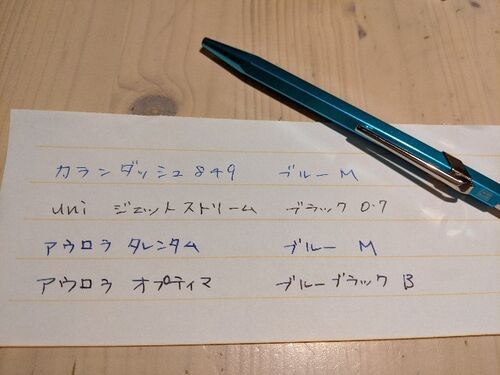 カランダッシュ849 ブルー M
uni ジェットストリーム ブラック 0.7
アウロラ タレンタム ブルー M
アウロラ オプティマ ブルーブラック B